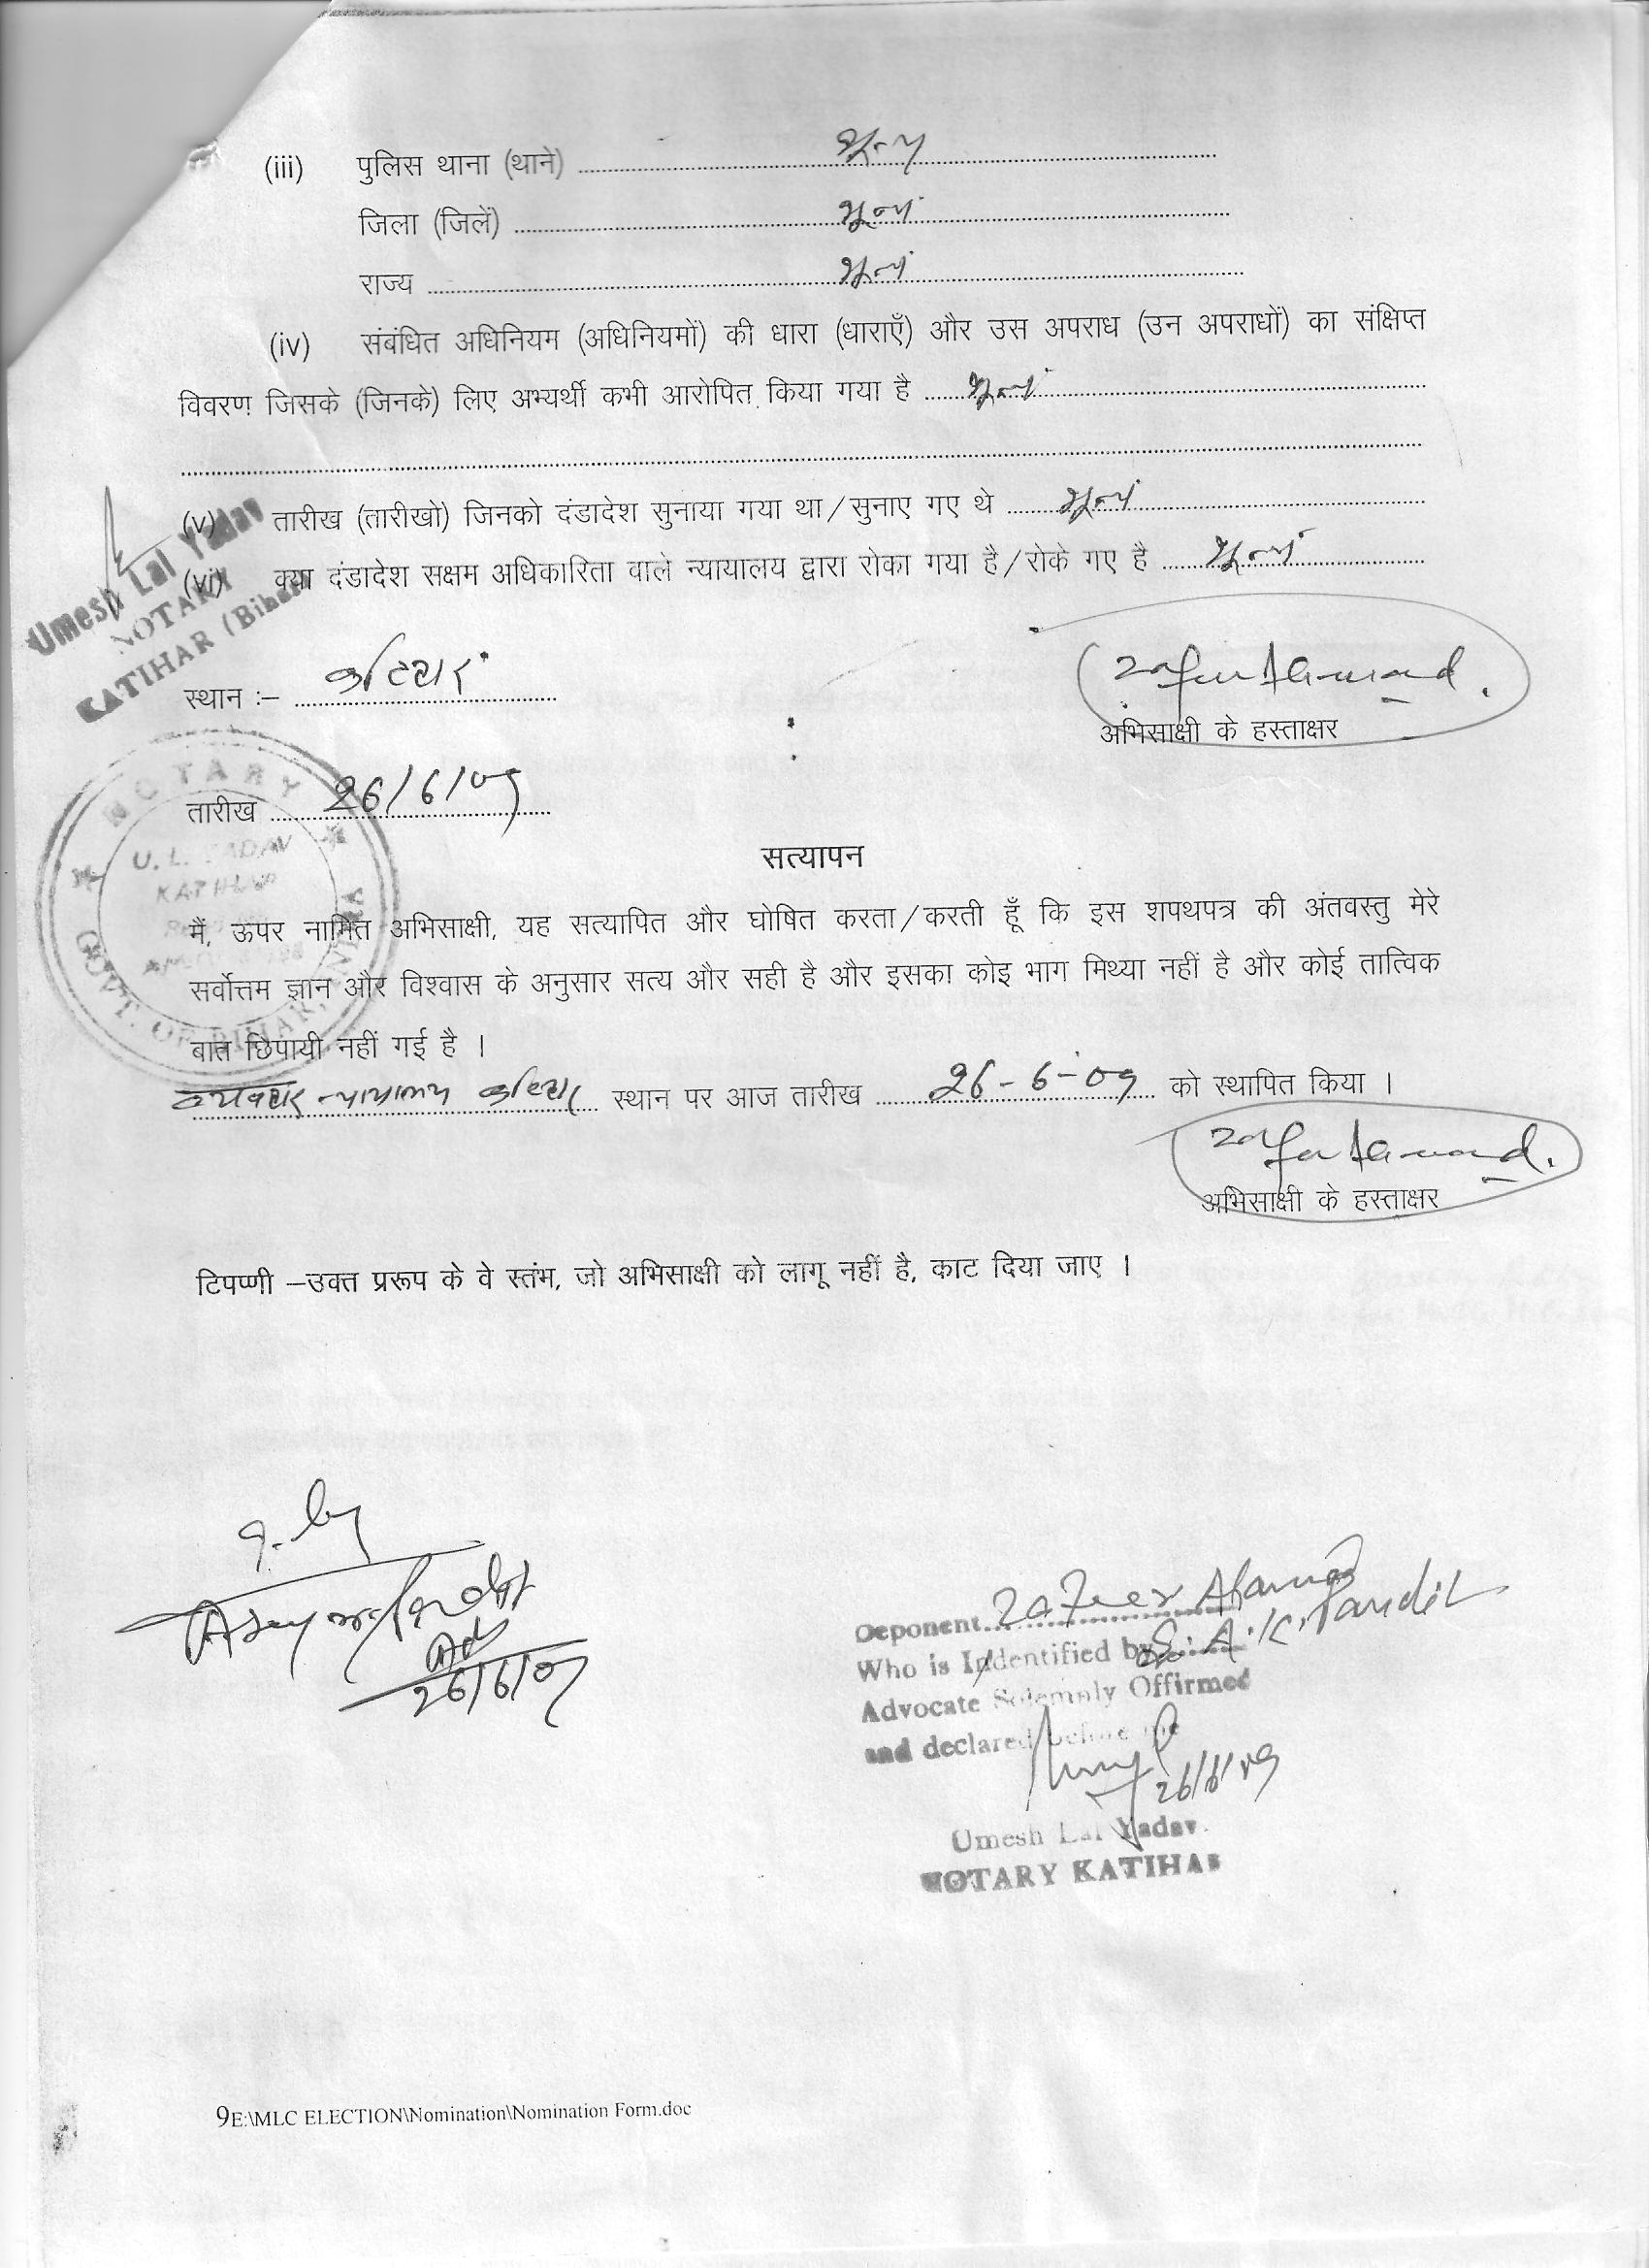 (iii) पुलिस थाना (थाने) शून्य
जिला (जिलें) शून्य
राज्य शून्य
(iv) संबंधित अधिनियम (अधिनियमों) की धारा (धाराएँ) और उस अपराध (उन अपराधों) का संक्षिप्त
विवरण जिसके (जिनके) लिए अभ्यर्थी कभी आरोपित किया गया है शून्य
(v) तारीख (तारीखो) जिनको दंडादेश सुनाया गया था/सुनाए गए थे शून्य
(vi) क्या दंडादेश सक्षम अधिकारिता वाले न्यायालय द्वारा रोका गया है/रोके गए है शून्य
Umesh Lal Yadav
NOTARY
KATIHAR (Bihar)
स्थान :– कटिहार
Zafer Ahamad.
अभिसाक्षी के हस्ताक्षर
तारीख 26/6/09
NOTARY
U. L. YADAV
GOVT. OF BIHAR, INDIA
सत्यापन
मैं, ऊपर नामित अभिसाक्षी, यह सत्यापित और घोषित करता/करती हूँ कि इस शपथपत्र की अंतवस्तु मेरे
सर्वोत्तम ज्ञान और विश्वास के अनुसार सत्य और सही है और इसका कोइ भाग मिथ्या नहीं है और कोई तात्विक
बात छिपायी नहीं गई है ।
व्यवहार न्यायालय कटिहार स्थान पर आज तारीख 26-6-09 को स्थापित किया ।
Zafer Ahamad.
अभिसाक्षी के हस्ताक्षर
टिपप्णी –उक्त प्ररूप के वे स्तंभ, जो अभिसाक्षी को लागू नहीं है, काट दिया जाए ।
Adv
26/6/09
Deponent Zafeer Ahamad
Who is Indentified by S. A.K. Pandit
Advocate Solemnly Offirmed
and declared before me
26/6/09
Umesh Lal Yadav.
NOTARY KATIHAR
9E:\MLC ELECTION\Nomination\Nomination Form.doc